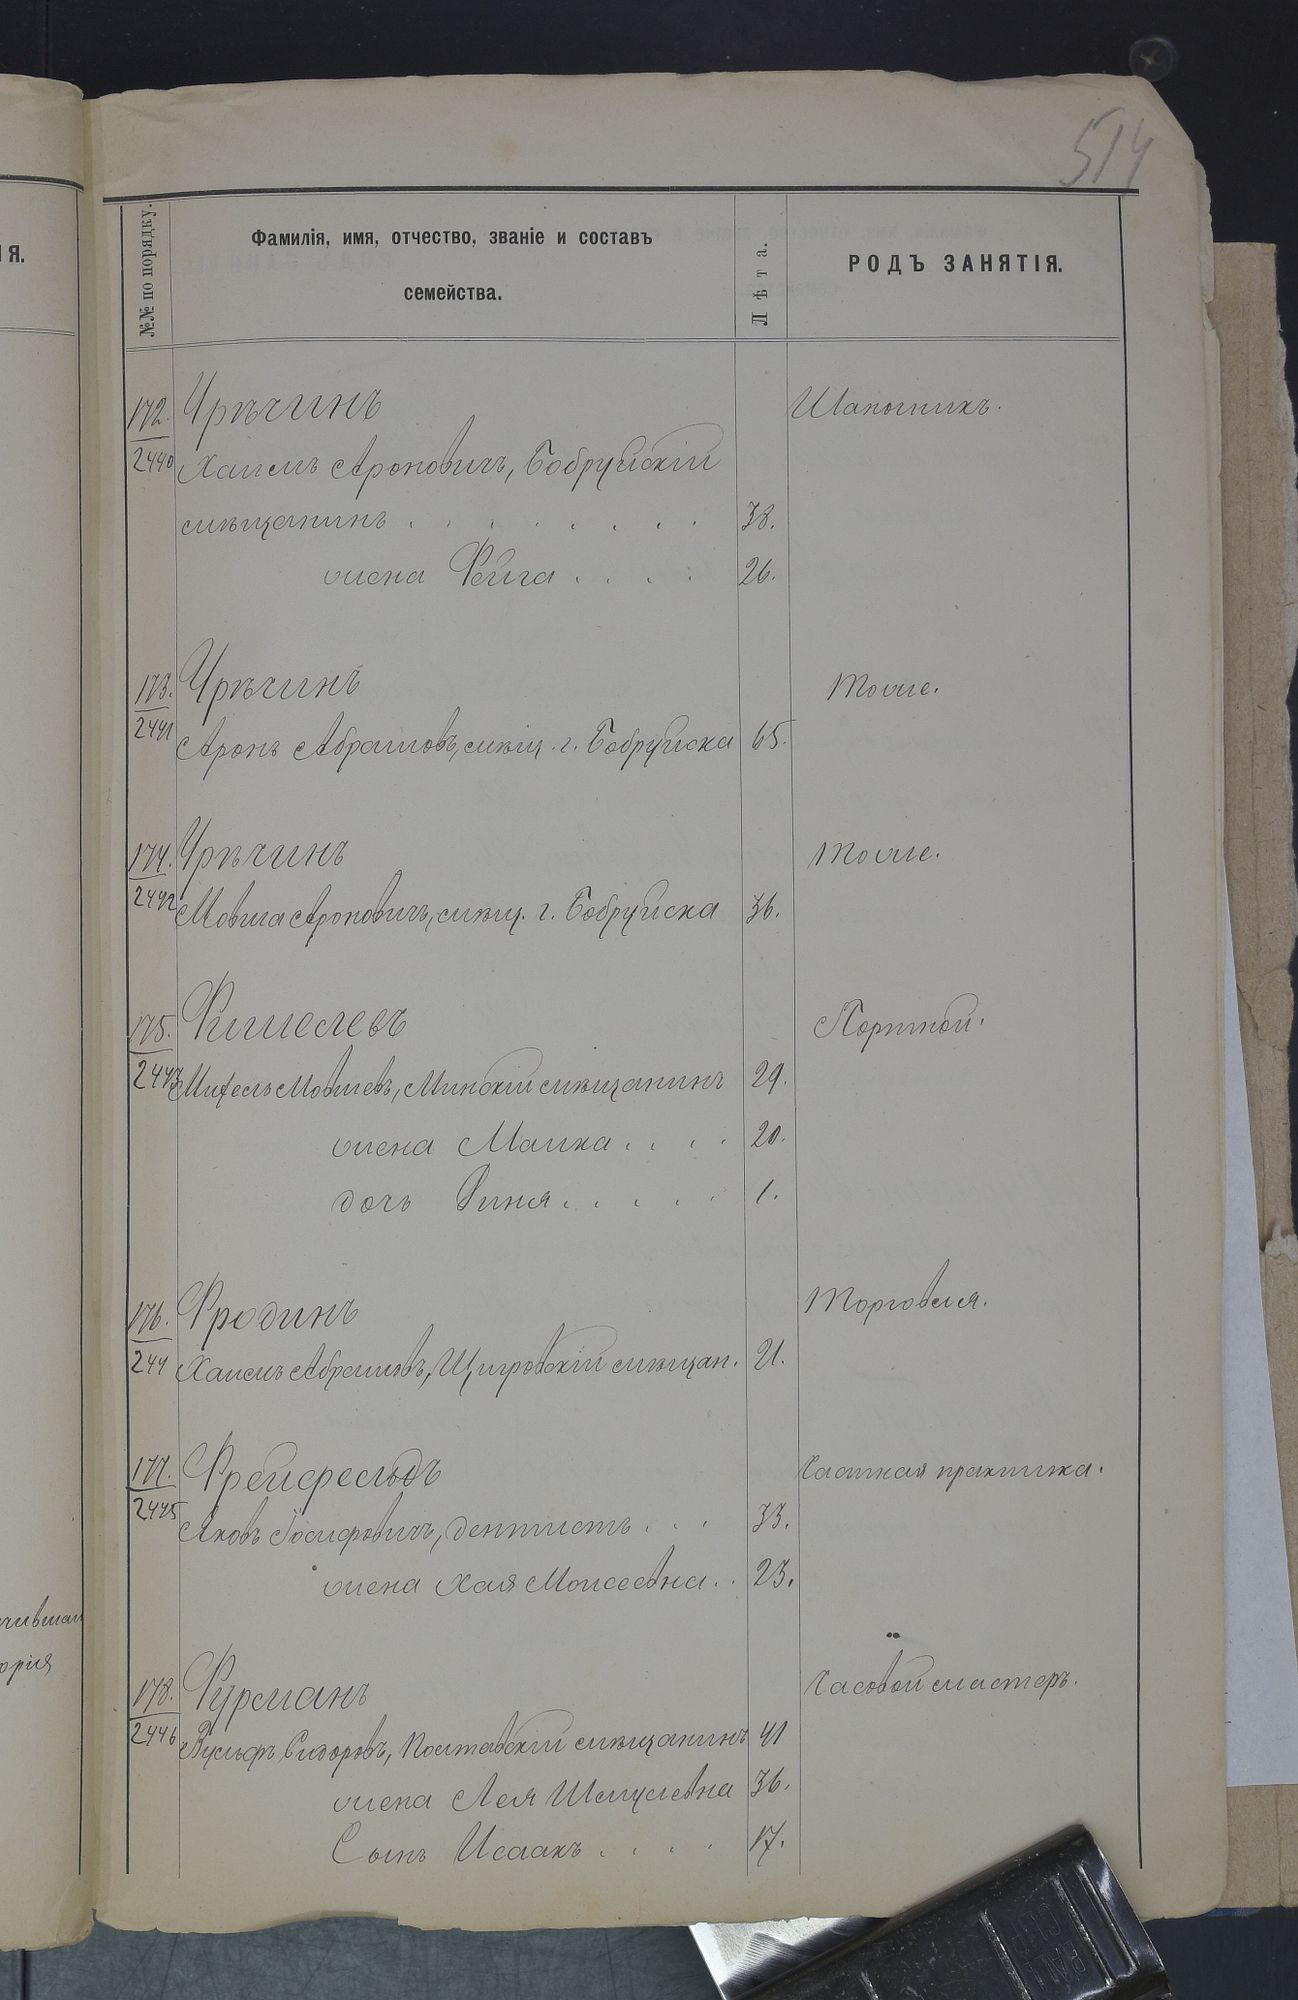 514
№№ по порядку.
Фамилія, имя, отчество, званіе и составъ
семейства.
Лѣта.
РОДЪ ЗАНЯТІЯ.
ІЯ.
172. Урѣчинъ Шапочникъ.
2440 Хаимъ Ароновичъ, Бобруйскій
мѣщанинъ . . . . . . . . 38.
жена Фейга . . . . 26.
173. Урѣчинъ Тоже.
2441 Аронъ Абрамовъ, мѣщ. г. Бобруйска 65.
174. Урѣчинъ Тоже.
2442 Мовша Ароновичъ, мѣщ. г. Бобруйска 36.
175. Фишелевъ Портной.
2443 Михель Мовшевъ, Минскій мѣщанинъ 29.
жена Малка . . . . 20.
дочь Риня . . . . . 1.
176. Фродинъ Торговля.
244 Хаимъ Абрамовъ, Щигровскій мѣщан. 21.
177. Фрейфельдъ Частная практика.
2445 Яковъ Іосифовичъ, дентистъ . . . 33.
жена Хая Моисеевна . . 23.
178. Фурманъ Часовой мастеръ.
2446 Вульфъ Сидоровъ, Полтавскій мѣщанинъ 41
жена Лея Шмулевна 36.
Сынъ Исаакъ . . . . 17.
чившая
орія